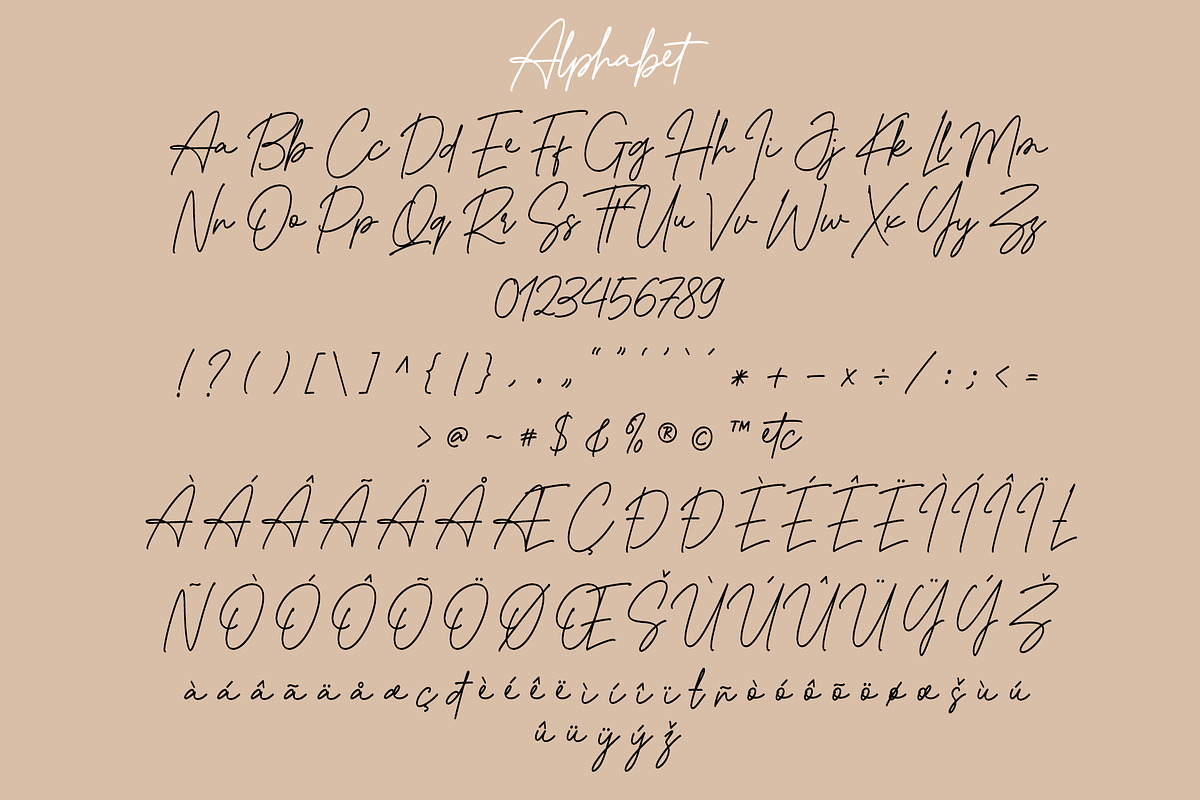 Alphabet
Aa Bb Cc Dd Ee Ff Gg Hh Ii Jj Kk Ll Mm
Nn Oo Pp Qq Rr Ss Tt Uu Vv Ww Xx Yy Zz
0123456789
! ? ( ) [ \ ] ^ { | } , . „ “ ” ‘ ’ ` ´ * + − × ÷ / : ; < =
> @ ~ # $ & % ® © ™ etc
À Á Â Ã Ä Å Æ Ç Đ Ð È É Ê Ë Ì Í Î Ï Ł
Ñ Ò Ó Ô Õ Ö Ø Œ Š Ù Ú Û Ü Ÿ Ý Ž
à á â ã ä å æ ç đ è é ê ë ì í î ï ł ñ ò ó ô õ ö ø œ š ù ú
û ü ÿ ý ž